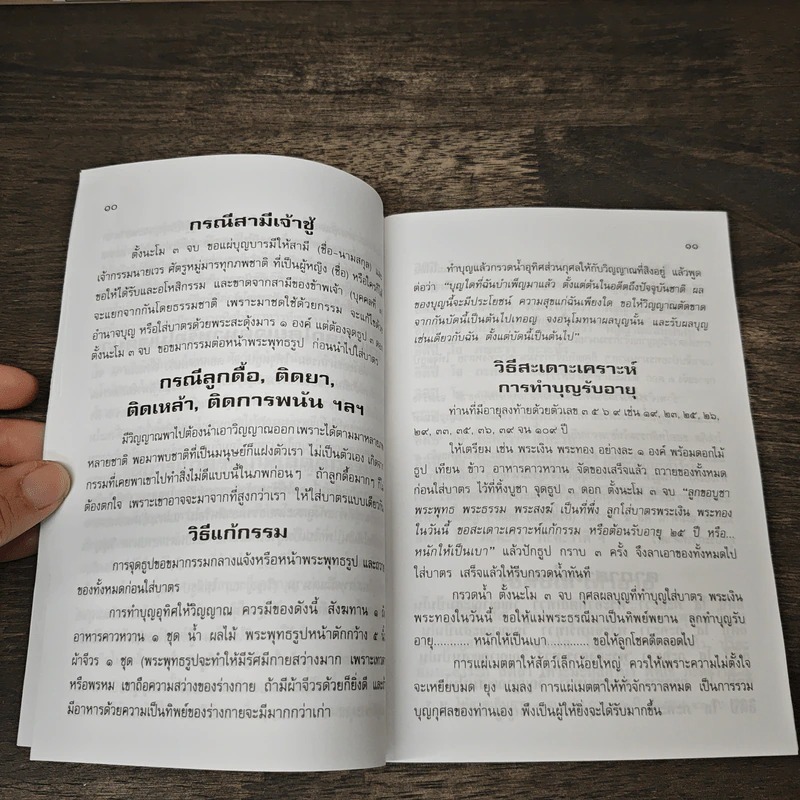 ๑๐
กรณีสามีเจ้าชู้
ตั้งนะโม ๓ จบ ขอแผ่บุญบารมีให้สามี (ชื่อ-นามสกุล) และ
(เจ้ากรรมนายเวร ศัตรูหมู่มารทุกภพชาติ ที่เป็นผู้หญิง (ชื่อ) หรือใครก็ได้
ขอให้ได้รับและอโหสิกรรม และขาดจากสามีของข้าพเจ้า (บุคคลที่ ๓
จะแยกจากกันโดยธรรมชาติ เพราะมาชดใช้ด้วยกรรม จะแก้ไขด้วย
อำนาจบุญ หรือใส่บาตรด้วยพระสะดุ้งมาร ๑ องค์ แต่ต้องจุดธูป ๓ ดอก
ตั้งนะโม ๓ จบ ขอขมากรรมต่อหน้าพระพุทธรูป ก่อนนำไปใส่บาตร
กรณีลูกดื้อ, ติดยา,
ติดเหล้า, ติดการพนัน ฯลฯ
มีวิญญาณพาไปต้องนำเอาวิญญาณออกเพราะได้ตามมาหลาย
หลายชาติ พอมาพบชาติที่เป็นมนุษย์ก็แฝงตัวเรา ไม่เป็นตัวเอง เกิดจาก
กรรมที่เคยพาเขาไปทำสิ่งไม่ดีแบบนี้ในภพก่อนๆ ถ้าลูกดื้อมากๆ ก็ไม่
ต้องตกใจ เพราะเขาอาจจะมาจากที่สูงกว่าเรา ให้ใส่บาตรแบบเดียวกัน
วิธีแก้กรรม
การจุดธูปขอขมากรรมกลางแจ้งหรือหน้าพระพุทธรูป และถวาย
ของทั้งหมดก่อนใส่บาตร
การทำบุญอุทิศให้วิญญาณ ควรมีของดังนี้ สังฆทาน ๑
อาหารคาวหวาน ๑ ชุด น้ำ ผลไม้ พระพุทธรูปหน้าตักกว้าง ๕ นิ้ว
ผ้าจีวร ๑ ชุด (พระพุทธรูปจะทำให้มีรัศมีกายสว่างมาก เพราะเทวดา
หรือพรหม เขาถือความสว่างของร่างกาย ถ้ามีผ้าจีวรด้วยก็ยิ่งดี และ
มีอาหารด้วยความเป็นทิพย์ของร่างกายจะมีมากกว่าเก่า
๑๑
ทำบุญแล้วกรวดน้ำอุทิศส่วนกุศลให้กับวิญญาณที่สิงอยู่ แล้วพูด
ต่อว่า "บุญใดที่ฉันบำเพ็ญมาแล้ว ตั้งแต่ต้นในอดีตถึงปัจจุบันชาติ ผล
ของบุญนี้จะมีประโยชน์ ความสุขแก่ฉันเพียงใด ขอให้วิญญาณตัดขาด
จากกันบัดนี้เป็นต้นไปเทอญ จงอนุโมทนาผลบุญนั้น และรับผลบุญ
เช่นเดียวกับฉัน ตั้งแต่บัดนี้เป็นต้นไป"
วิธีสะเดาะเคราะห์
การทำบุญรับอายุ
ท่านที่มีอายุลงท้ายด้วยตัวเลข ๓ ๕ ๖ ๙ เช่น ๑๙, ๒๓, ๒๕, ๒๖,
๒๙, ๓๓, ๓๕, ๓๖, ๓๙ จน ๑๐๙ ปี
ให้เตรียม เช่น พระเงิน พระทอง อย่างละ ๑ องค์ พร้อมดอกไม้
ธูป เทียน ข้าว อาหารคาวหวาน จัดของเสร็จแล้ว ถวายของทั้งหมด
ก่อนใส่บาตร ไว้ที่หิ้งบูชา จุดธูป ๓ ดอก ตั้งนะโม ๓ จบ "ลูกขอบูชา
พระพุทธ พระธรรม พระสงฆ์ เป็นที่พึ่ง ลูกใส่บาตรพระเงิน พระทอง
ในวันนี้ ขอสะเดาะเคราะห์แก้กรรม หรือต้อนรับอายุ ๒๕ ปี หรือ...
หนักให้เป็นเบา" แล้วปักธูป กราบ ๓ ครั้ง จึงลาเอาของทั้งหมดไป
ใส่บาตร เสร็จแล้วให้รีบกรวดน้ำทันที
กรวดน้ำ ตั้งนะโม ๓ จบ กุศลผลบุญที่ทำบุญใส่บาตร พระเงิน
พระทองในวันนี้ ขอให้แม่พระธรณีมาเป็นทิพย์พยาน ลูกทำบุญรับ
อายุ.......... หนักให้เป็นเบา............ ขอให้ลูกโชคดีตลอดไป
การแผ่เมตตาให้สัตว์เล็กน้อยใหญ่ ควรให้เพราะความไม่ตั้งใจ
จะเหยียบมด ยุง แมลง การแผ่เมตตาให้ทั่วจักรวาลหมด เป็นการรวม
บุญกุศลของท่านเอง พึงเป็นผู้ให้ยิ่งจะได้รับมากขึ้น